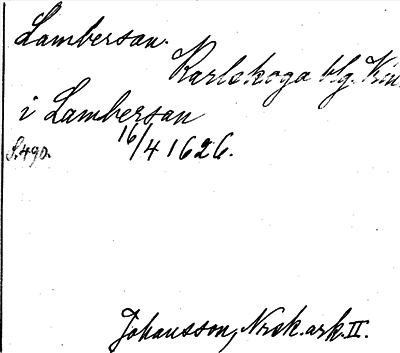 Lamberson.
Karlskoga blg. Kin
i Lamberson
S.490. 16/4 1626.
Johansson, Norsk. ark. II.